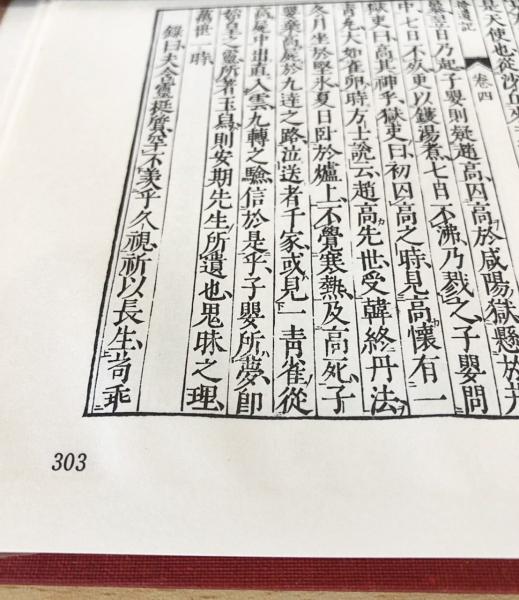 是天使也從沙丘來
拾遺記
卷四
暴翌日乃起子嬰則疑趙高囚高於咸陽獄懸於井
中七日不死更以鑊湯煮七日不沸乃戮之子嬰問
獄吏曰高其神乎獄吏曰初囚高之時見高懷有一
青丸大如雀卵時方士說云趙高先世受韓終丹法
冬月坐於堅氷夏日卧於爐上不覺寒熱及高死子
嬰棄高屍於九逵之路泣送者千家或見一青雀從
高屍中出直入雲九轉之驗信於是乎子嬰所夢卽
始皇之靈所著玉舄則安期先生所遺也鬼昧之理
萬世一時
錄曰夫含靈挺質罕不羨乎久視祈以長生苟乖
303